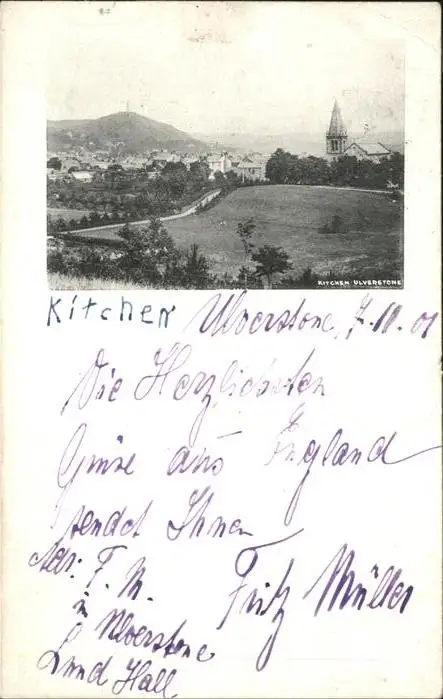 KITCHEN ULVERSTONE
Kitchen Ulverstone, 7.11.01
Die Herzlichsten
Grüse aus England
sendet Ihnen
Fritz Müller
Adr: F. M.
in Ulverstone
Lund Hall